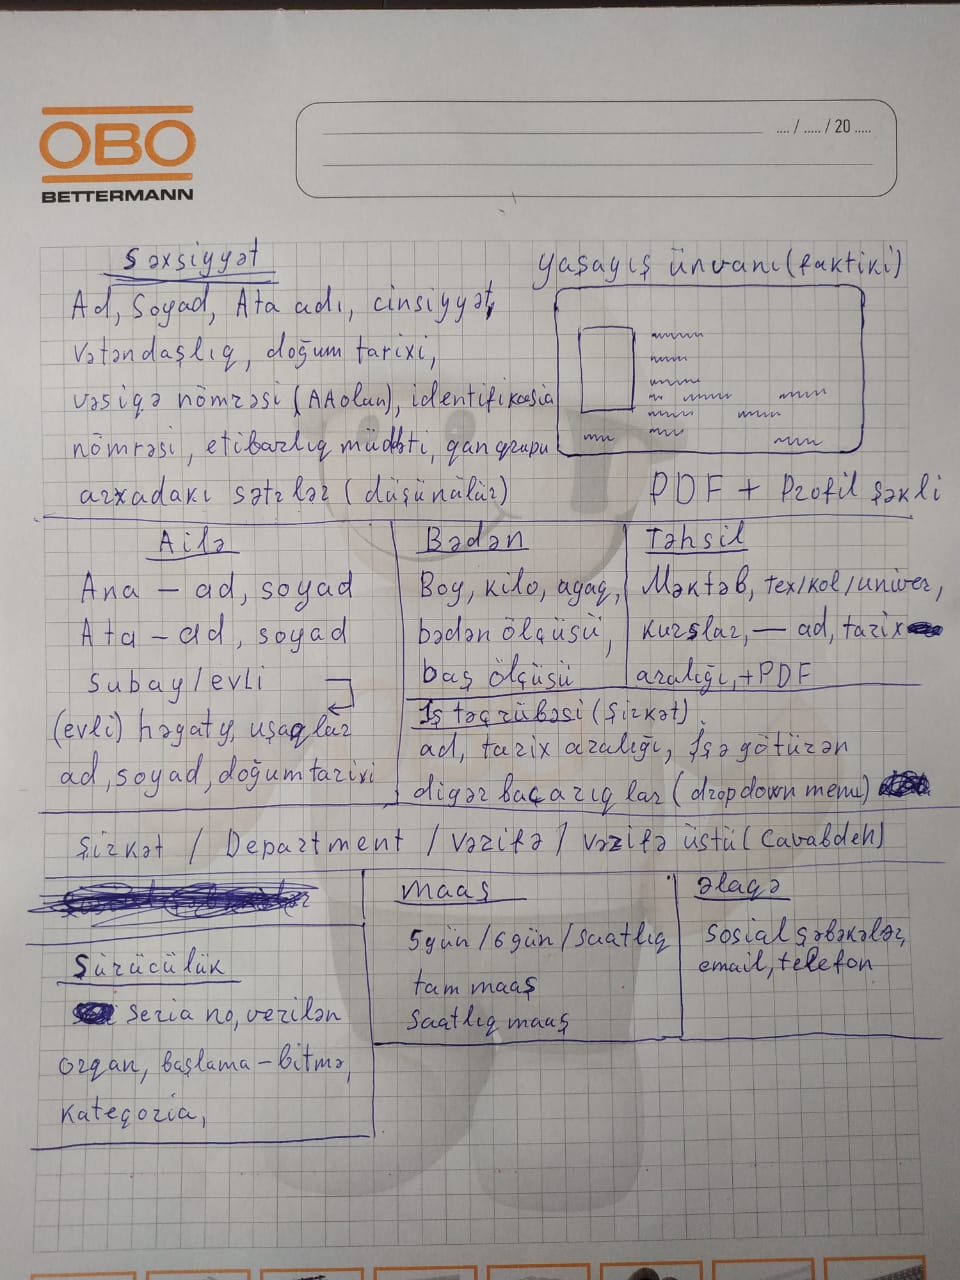 OBO
BETTERMANN
.... / ..... / 20 .....
Şəxsiyyət
Ad, Soyad, Ata adı, cinsiyyət,
vətəndaşlıq, doğum tarixi,
vəsiqə nömrəsi (AA olan), identifikasia
nömrəsi, etibarlıq müddəti, qan qrupu
arxadakı sətrlər (düşünülür)
Yaşayış ünvanı (faktiki)
PDF + Profil şəkli
Ailə
Ana – ad, soyad
Ata – ad, soyad
Subay/evli
(evli) həyaty, uşaqlar
ad, soyad, doğum tarixi
Bədən
Boy, kilo, ayaq,
bədən ölçüsü,
baş ölçüsü
Təhsil
Məktəb, tex/kol/univer,
kurslar, – ad, tarix
aralığı, + PDF
İş təcrübəsi (Şirkət)
ad, tarix aralığı, İşə götürən
digər bacarıqlar (dropdown menu)
Şirkət / Department / Vəzifə / vəzifə üstü (Cavabdeh)
Sürücülük
Seria no, verilən
orqan, başlama – bitmə,
kateqoria,
Maaş
5 gün / 6 gün / Saatlıq
tam maaş
Saatlıq maaş
Əlaqə
Sosial şəbəkələr,
email, telefon